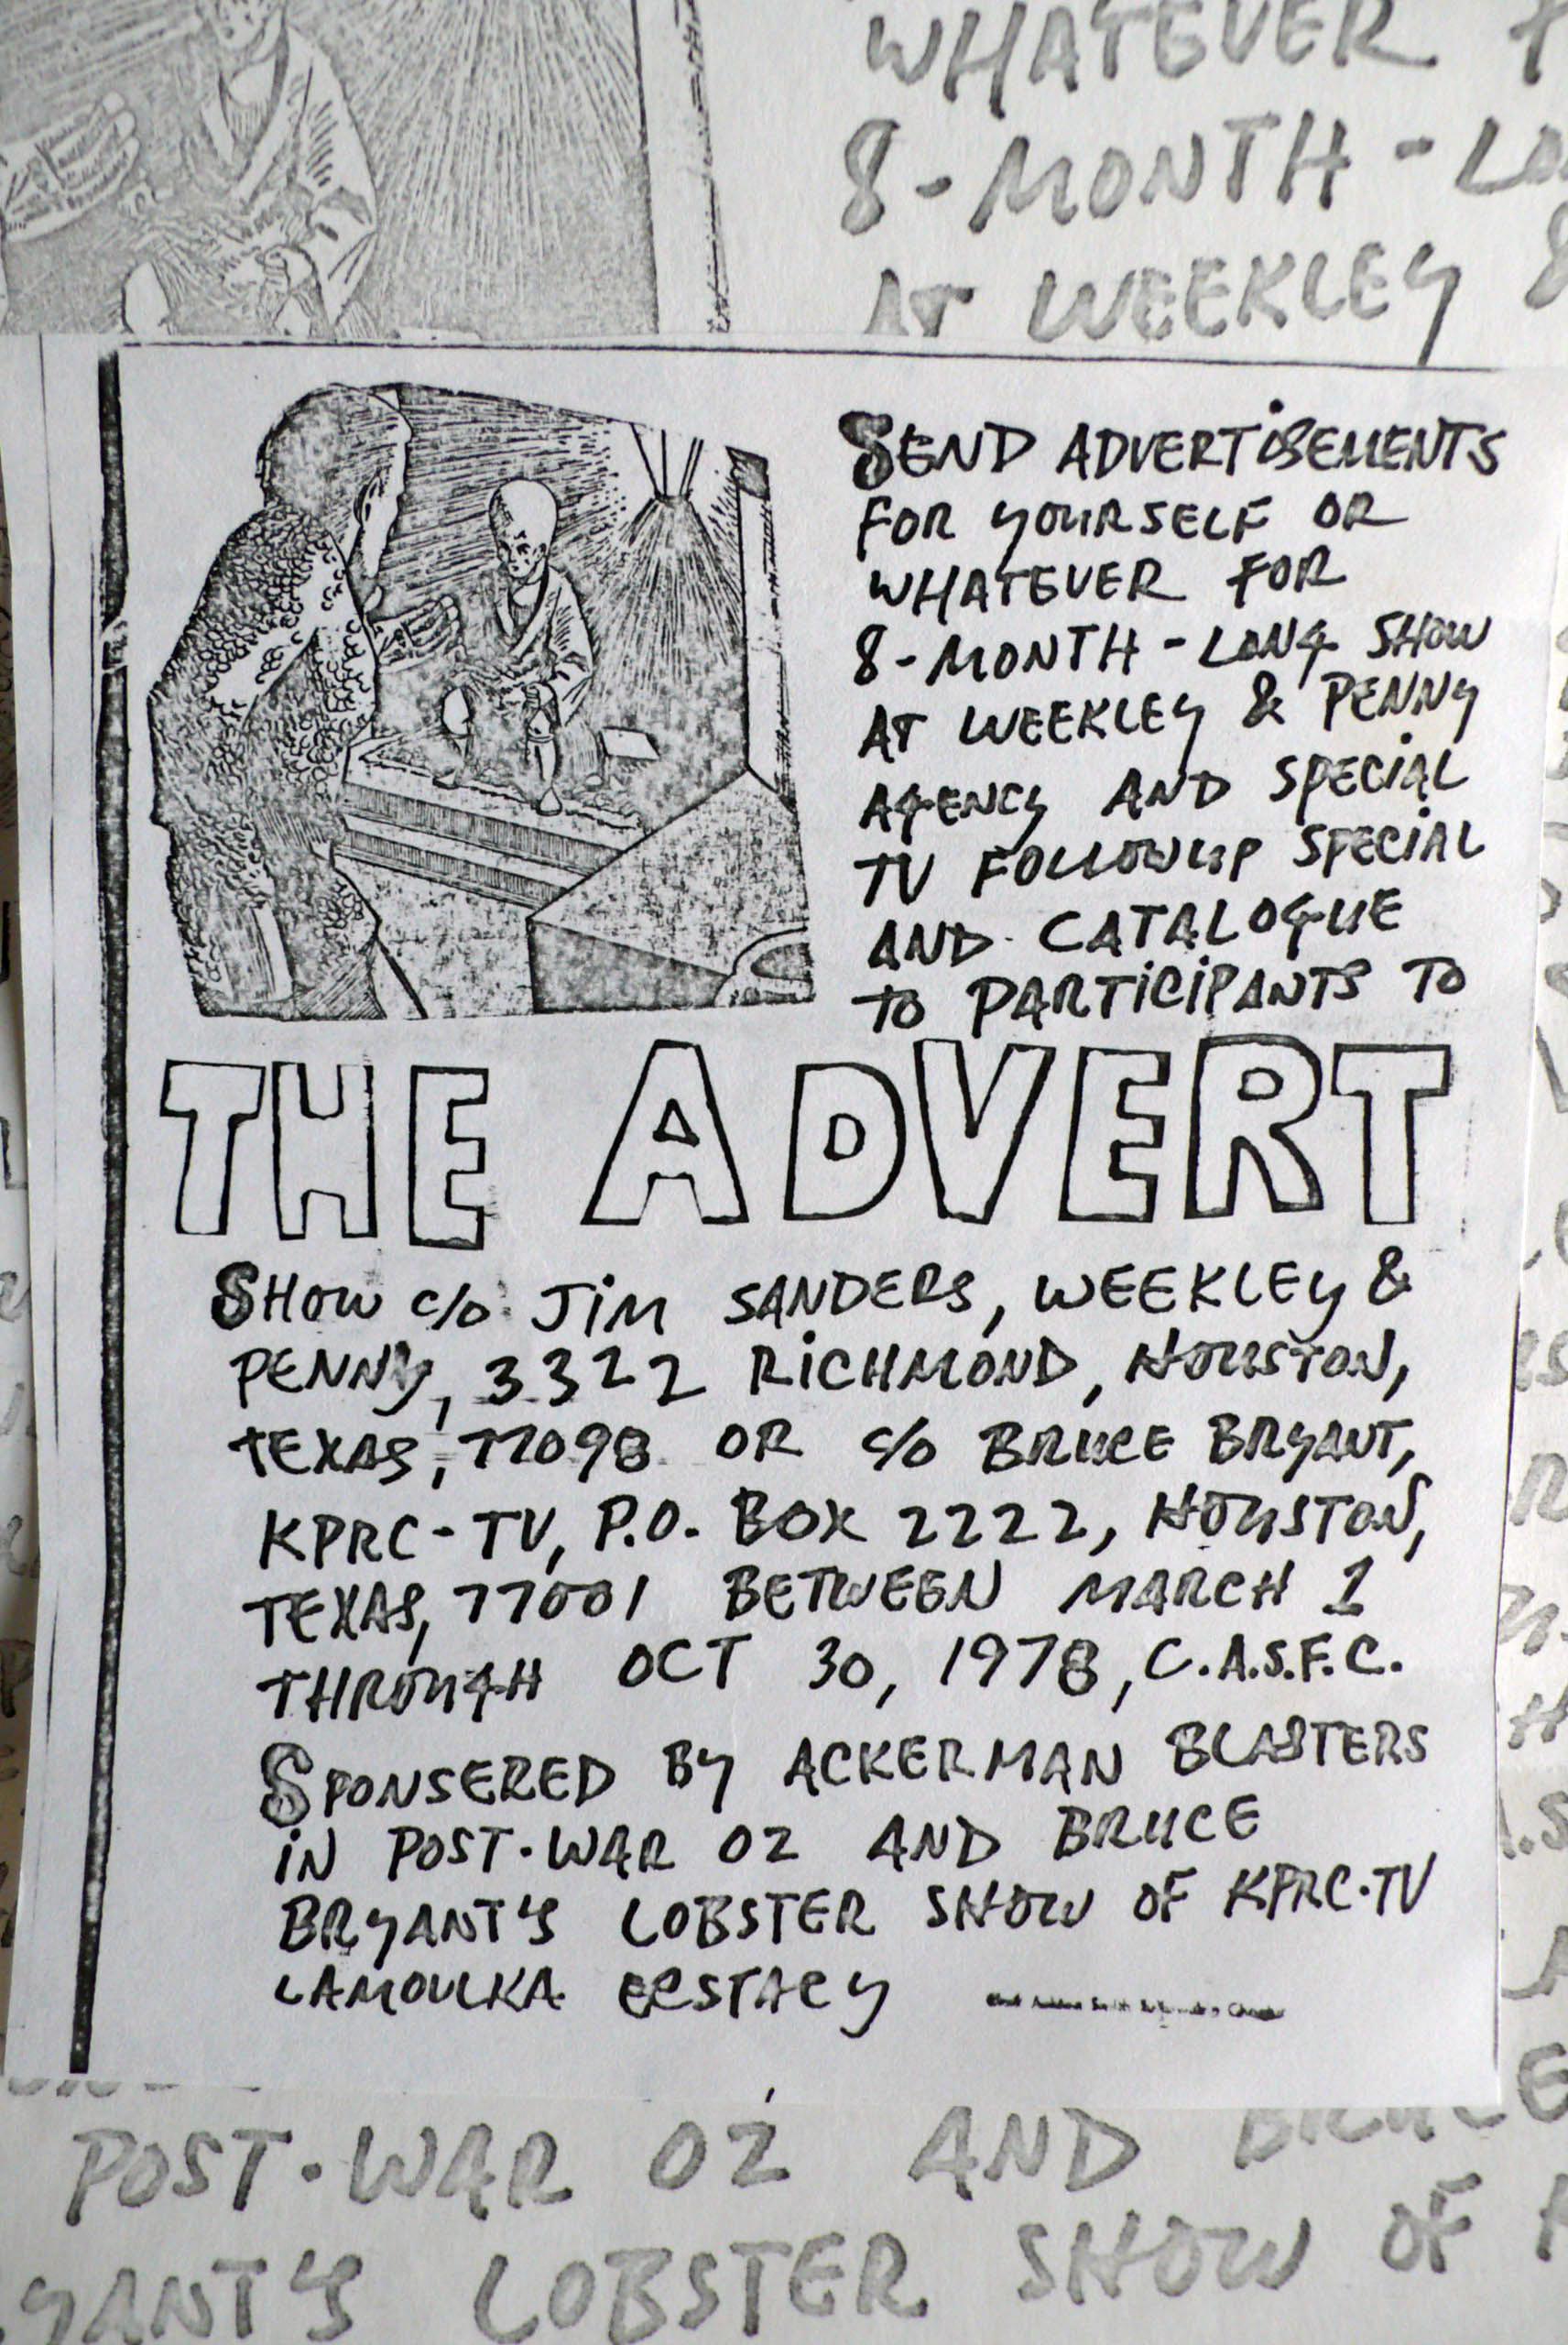 WHATEVER
8-MONTH-LO
AT WEEKLEY
SEND ADVERTISEMENTS
FOR YOURSELF OR
WHATEVER FOR
8-MONTH-LONG SHOW
AT WEEKLEY & PENNY
AGENCY AND SPECIAL
TV FOLLOWUP SPECIAL
AND CATALOGUE
TO PARTICIPANTS TO
THE ADVERT
SHOW C/O JIM SANDERS, WEEKLEY &
PENNY, 3322 RICHMOND, HOUSTON,
TEXAS, 77098 OR C/O BRUCE BRYANT,
KPRC-TV, P.O. BOX 2222, HOUSTON,
TEXAS, 77001 BETWEEN MARCH 1
THROUGH OCT 30, 1978, C.A.S.F.C.
SPONSERED BY ACKERMAN BLASTERS
IN POST-WAR OZ AND BRUCE
BRYANT'S LOBSTER SHOW OF KPRC-TV
LAMOULKA ECSTACY
POST-WAR OZ AND BRUCE
YANT'S LOBSTER SHOW OF